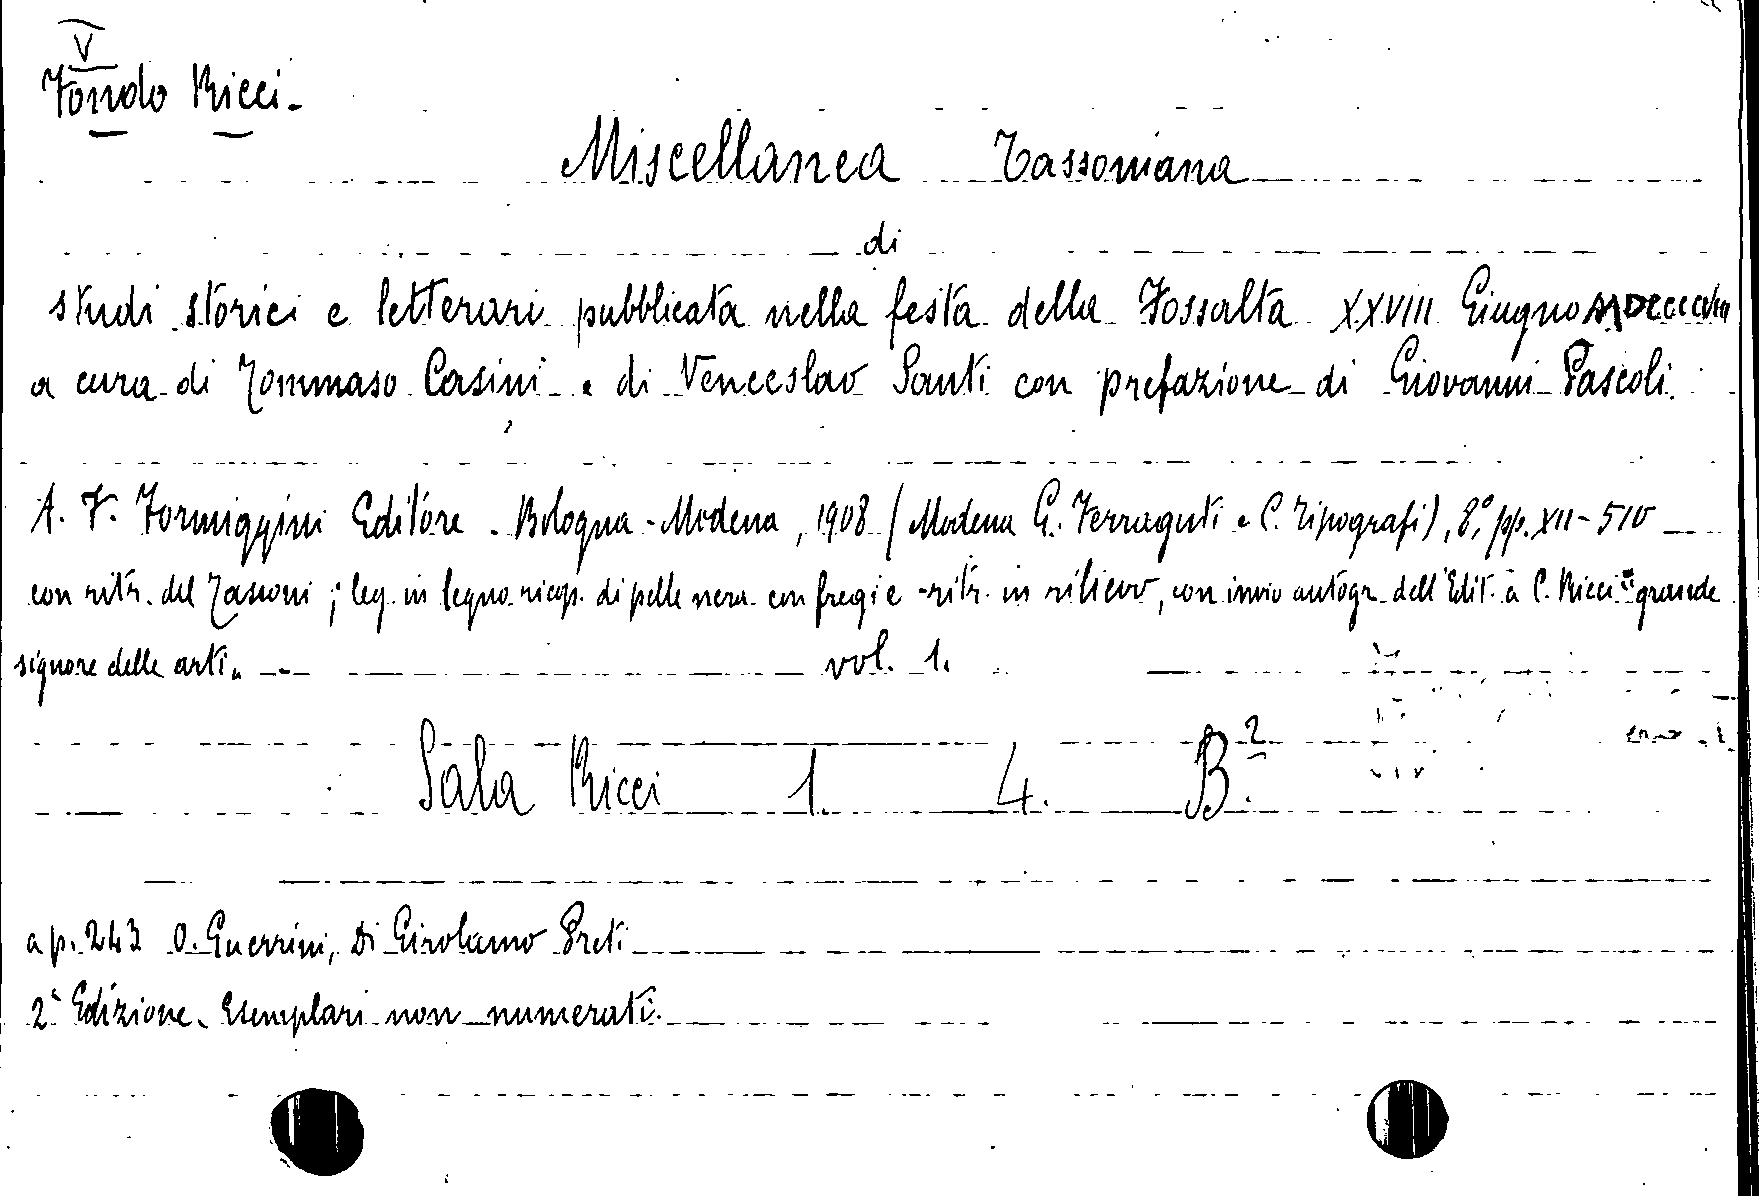 V
Fondo Ricci.
Miscellanea Tassoniana
di
studi storici e letterari pubblicata nella festa della Fossalta XXVIII Giugno MDCCCCVIII
a cura di Tommaso Casini e di Venceslao Santi con prefazione di Giovanni Pascoli.
A. F. Formiggini Editore. Bologna-Modena, 1908 (Modena G. Ferraguti e C. Tipografi), 8°, pp. XII-510
con ritr. del Tassoni; leg. in legno ricop. di pelle nera con fregi e ritr. in rilievo, con invio autogr. dell'Edit. a C. Ricci "grande
signore delle arti„ vol. 1.
Sala Ricci 1. 4. B.²
a p. 243 O. Guerrini, Di Girolamo Preti
2ª Edizione. Esemplari non numerati.